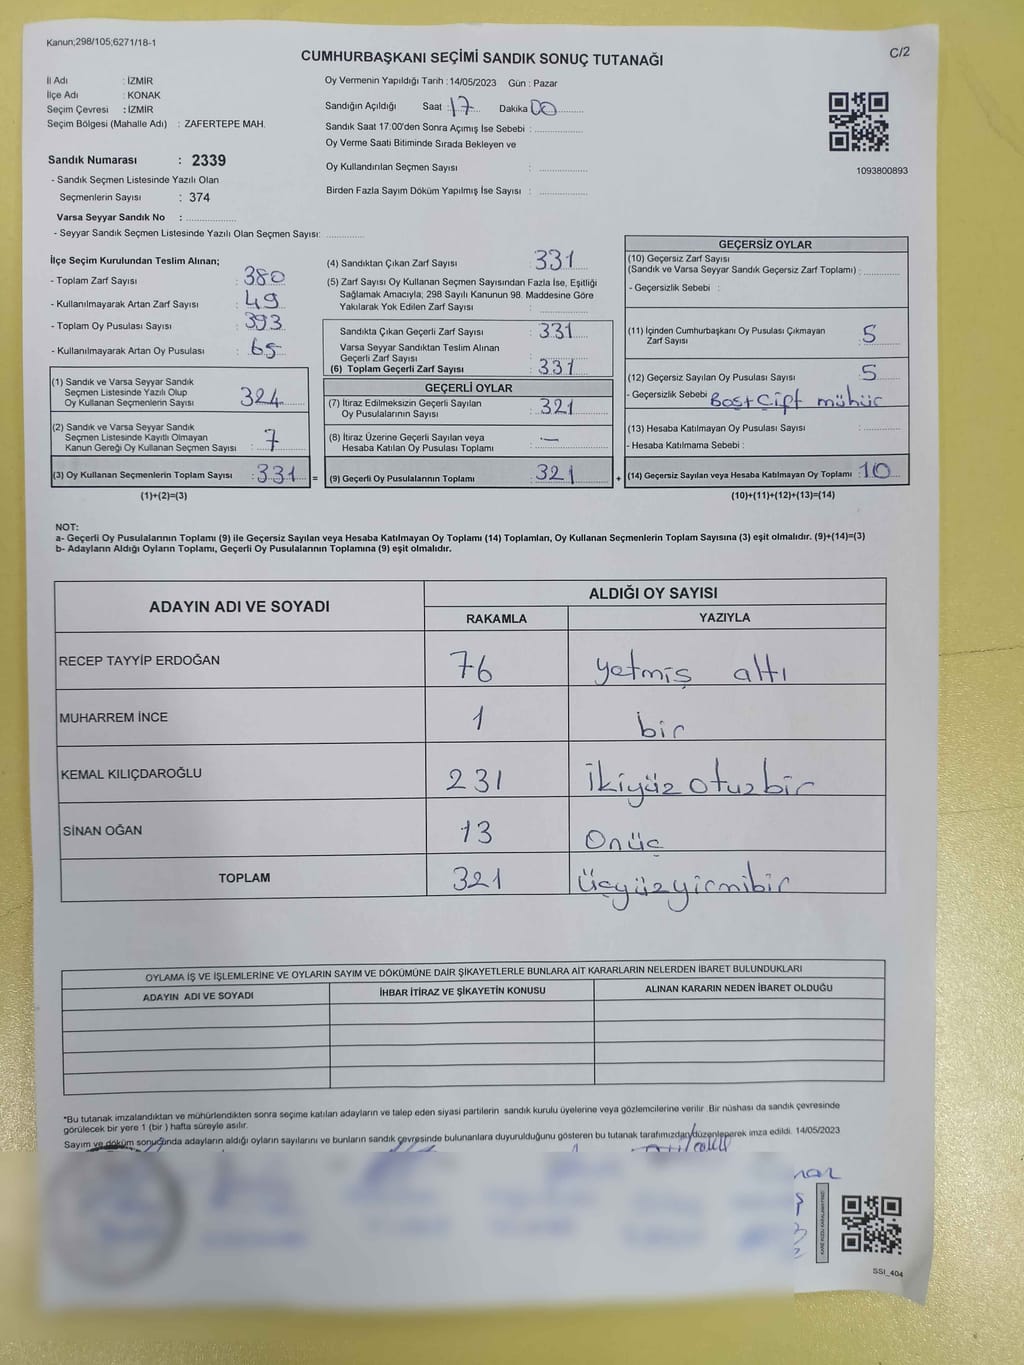 Kanun;298/105;6271/18-1
C/2
CUMHURBAŞKANI SEÇİMİ SANDIK SONUÇ TUTANAĞI
İl Adı : İZMİR
İlçe Adı : KONAK
Seçim Çevresi : İZMİR
Seçim Bölgesi (Mahalle Adı) : ZAFERTEPE MAH.
Sandık Numarası : 2339
- Sandık Seçmen Listesinde Yazılı Olan
Seçmenlerin Sayısı : 374
Varsa Seyyar Sandık No : ..................
- Seyyar Sandık Seçmen Listesinde Yazılı Olan Seçmen Sayısı: .............
Oy Vermenin Yapıldığı Tarih : 14/05/2023 Gün : Pazar
Sandığın Açıldığı Saat : 17 Dakika 00
Sandık Saat 17:00'den Sonra Açımış İse Sebebi : ..................
Oy Verme Saati Bitiminde Sırada Bekleyen ve
Oy Kullandırılan Seçmen Sayısı : ..................
Birden Fazla Sayım Döküm Yapılmış İse Sayısı : ..................
1093800893
İlçe Seçim Kurulundan Teslim Alınan;
- Toplam Zarf Sayısı : 380
- Kullanılmayarak Artan Zarf Sayısı : 49
- Toplam Oy Pusulası Sayısı : 393
- Kullanılmayarak Artan Oy Pusulası : 65
(1) Sandık ve Varsa Seyyar Sandık
Seçmen Listesinde Yazılı Olup
Oy Kullanan Seçmenlerin Sayısı : 324
(2) Sandık ve Varsa Seyyar Sandık
Seçmen Listesinde Kayıtlı Olmayan
Kanun Gereği Oy Kullanan Seçmen Sayısı : 7
(3) Oy Kullanan Seçmenlerin Toplam Sayısı : 331 =
(1)+(2)=(3)
(4) Sandıktan Çıkan Zarf Sayısı : 331
(5) Zarf Sayısı Oy Kullanan Seçmen Sayısından Fazla İse, Eşitliği
Sağlamak Amacıyla; 298 Sayılı Kanunun 98. Maddesine Göre
Yakılarak Yok Edilen Zarf Sayısı : ..................
Sandıkta Çıkan Geçerli Zarf Sayısı : 331
Varsa Seyyar Sandıktan Teslim Alınan
Geçerli Zarf Sayısı : ..................
(6) Toplam Geçerli Zarf Sayısı : 331
GEÇERLİ OYLAR
(7) İtiraz Edilmeksizin Geçerli Sayılan
Oy Pusulalarının Sayısı : 321
(8) İtiraz Üzerine Geçerli Sayılan veya
Hesaba Katılan Oy Pusulası Toplamı : —
(9) Geçerli Oy Pusulalarının Toplamı : 321 +
GEÇERSİZ OYLAR
(10) Geçersiz Zarf Sayısı
(Sandık ve Varsa Seyyar Sandık Geçersiz Zarf Toplamı) : .............
- Geçersizlik Sebebi :
(11) İçinden Cumhurbaşkanı Oy Pusulası Çıkmayan
Zarf Sayısı : 5
(12) Geçersiz Sayılan Oy Pusulası Sayısı : 5
- Geçersizlik Sebebi : Boş+Çift mühür
(13) Hesaba Katılmayan Oy Pusulası Sayısı : .............
- Hesaba Katılmama Sebebi :
(14) Geçersiz Sayılan veya Hesaba Katılmayan Oy Toplamı : 10
(10)+(11)+(12)+(13)=(14)
NOT:
a- Geçerli Oy Pusulalarının Toplamı (9) ile Geçersiz Sayılan veya Hesaba Katılmayan Oy Toplamı (14) Toplamları, Oy Kullanan Seçmenlerin Toplam Sayısına (3) eşit olmalıdır. (9)+(14)=(3)
b- Adayların Aldığı Oyların Toplamı, Geçerli Oy Pusulalarının Toplamına (9) eşit olmalıdır.
ADAYIN ADI VE SOYADI
ALDIĞI OY SAYISI
RAKAMLA YAZIYLA
RECEP TAYYİP ERDOĞAN 76 yetmiş altı
MUHARREM İNCE 1 bir
KEMAL KILIÇDAROĞLU 231 İkiyüzotuzbir
SİNAN OĞAN 13 Onüç
TOPLAM 321 Üçyüzyirmibir
OYLAMA İŞ VE İŞLEMLERİNE VE OYLARIN SAYIM VE DÖKÜMÜNE DAİR ŞİKAYETLERLE BUNLARA AİT KARARLARIN NELERDEN İBARET BULUNDUKLARI
ADAYIN ADI VE SOYADI İHBAR İTİRAZ VE ŞİKAYETİN KONUSU ALINAN KARARIN NEDEN İBARET OLDUĞU
*Bu tutanak imzalandıktan ve mühürlendikten sonra seçime katılan adayların ve talep eden siyasi partilerin sandık kurulu üyelerine veya gözlemcilerine verilir .Bir nüshası da sandık çevresinde
görülecek bir yere 1 (bir ) hafta süreyle asılır.
Sayım ve döküm sonuğunda adayların aldığı oyların sayılarını ve bunların sandık çevresinde bulunanlara duyurulduğunu gösteren bu tutanak tarafımızdan düzenlenerek imza edildi. 14/05/2023
SSI_404